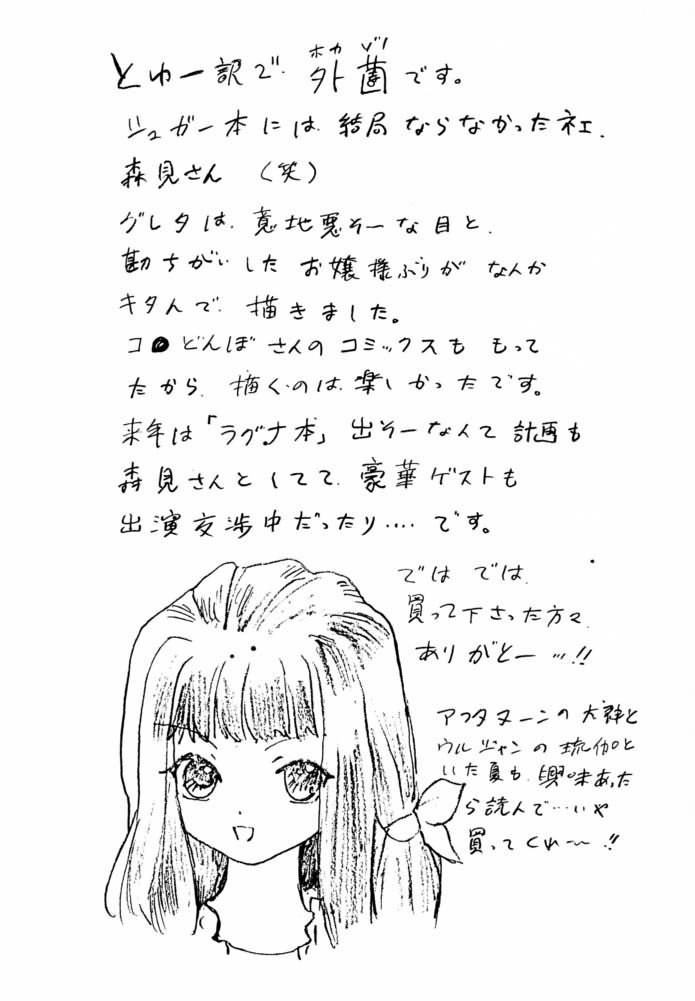 とゆー訳で、外薗です。
ホカ ゾノ
シュガー本には、結局ならなかったネェ、
森見さん (笑)
グレタは、意地悪そーな目と、
勘ちがいした お嬢様ぶりが なんか
キタんで、描きました。
コ●どんぼさんのコミックスも もって
たから、描くのは、楽しかったです。
来年は「ラグナ本」出そーなんて計画も
森見さんとしてて、豪華ゲストも
出演交渉中だったり‥‥です。
では では、
買って下さった方々、
ありがとー…!!
アフタヌーンの犬神と
ウルジャンの琉伽と
いた夏も、興味あった
ら読んで…いや
買ってくれ〜!!